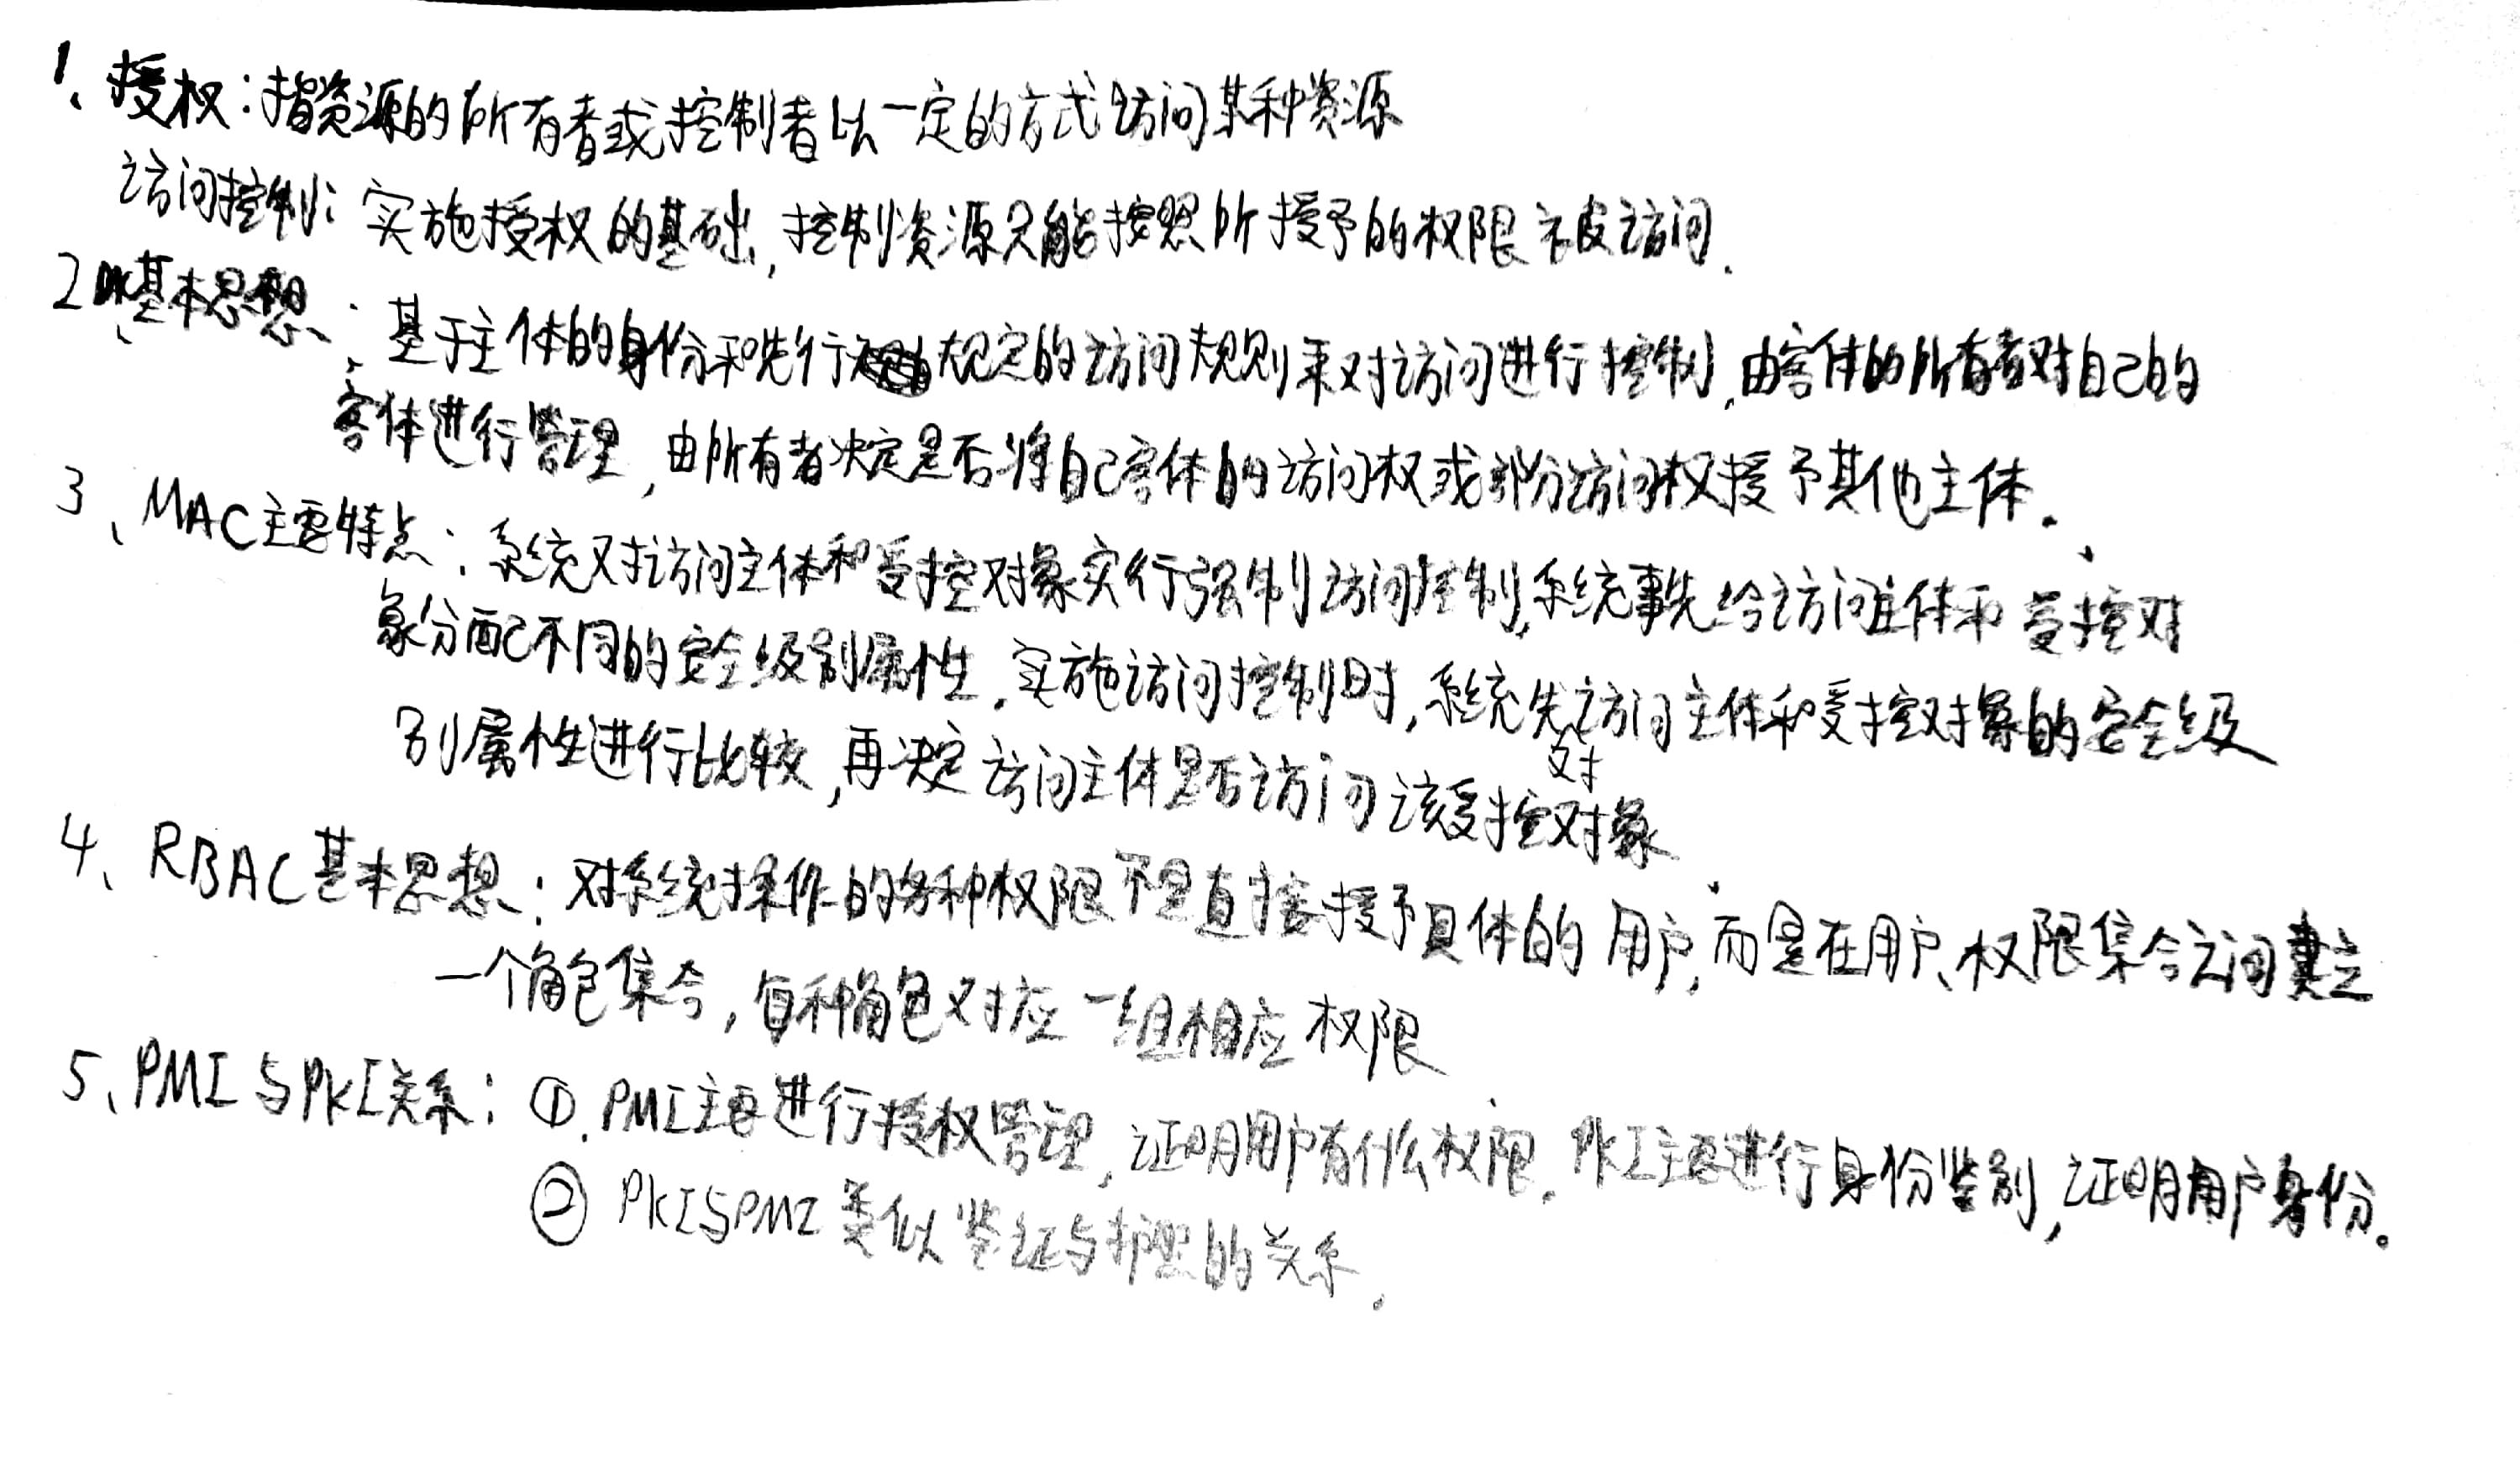 1、授权：指资源的所有者或控制者以一定的方式访问某种资源
访问控制：实施授权的基础，控制资源只能按照所授予的权限被访问．
2、基本思想：基于主体的身份和先行规定的访问规则来对访问进行控制，由客体的所有者对自己的
客体进行管理，由所有者决定是否将自己客体的访问权或部分访问权授予其他主体．
3、MAC主要特点：系统对访问主体和受控对象实行强制访问控制，系统事先给访问主体和受控对
象分配不同的安全级别属性，实施访问控制时，系统先对访问主体和受控对象的安全级
别属性进行比较，再决定访问主体是否访问该受控对象
4、RBAC基本思想：对系统操作的各种权限不是直接授予具体的用户，而是在用户、权限集合之间建立
一个角色集合，每种角色对应一组相应权限
5、PMI与PKI关系：①．PMI主要进行授权管理，证明用户有什么权限．PKI主要进行身份鉴别，证明用户身份。
② PKI与PMI类似签证与护照的关系．